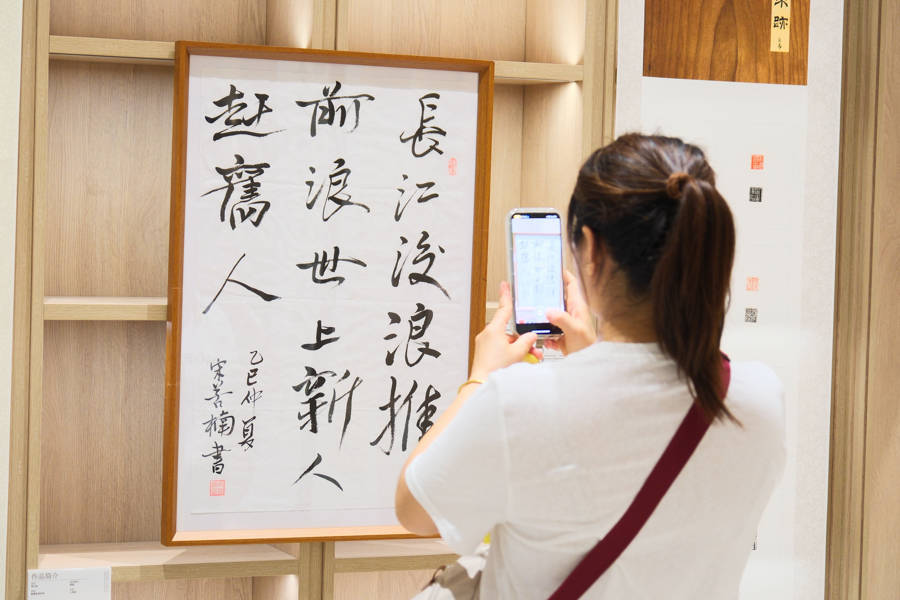 長江後浪推
前浪世上新人
赶舊人
乙巳仲夏
宋善楠書
跡
作品简介